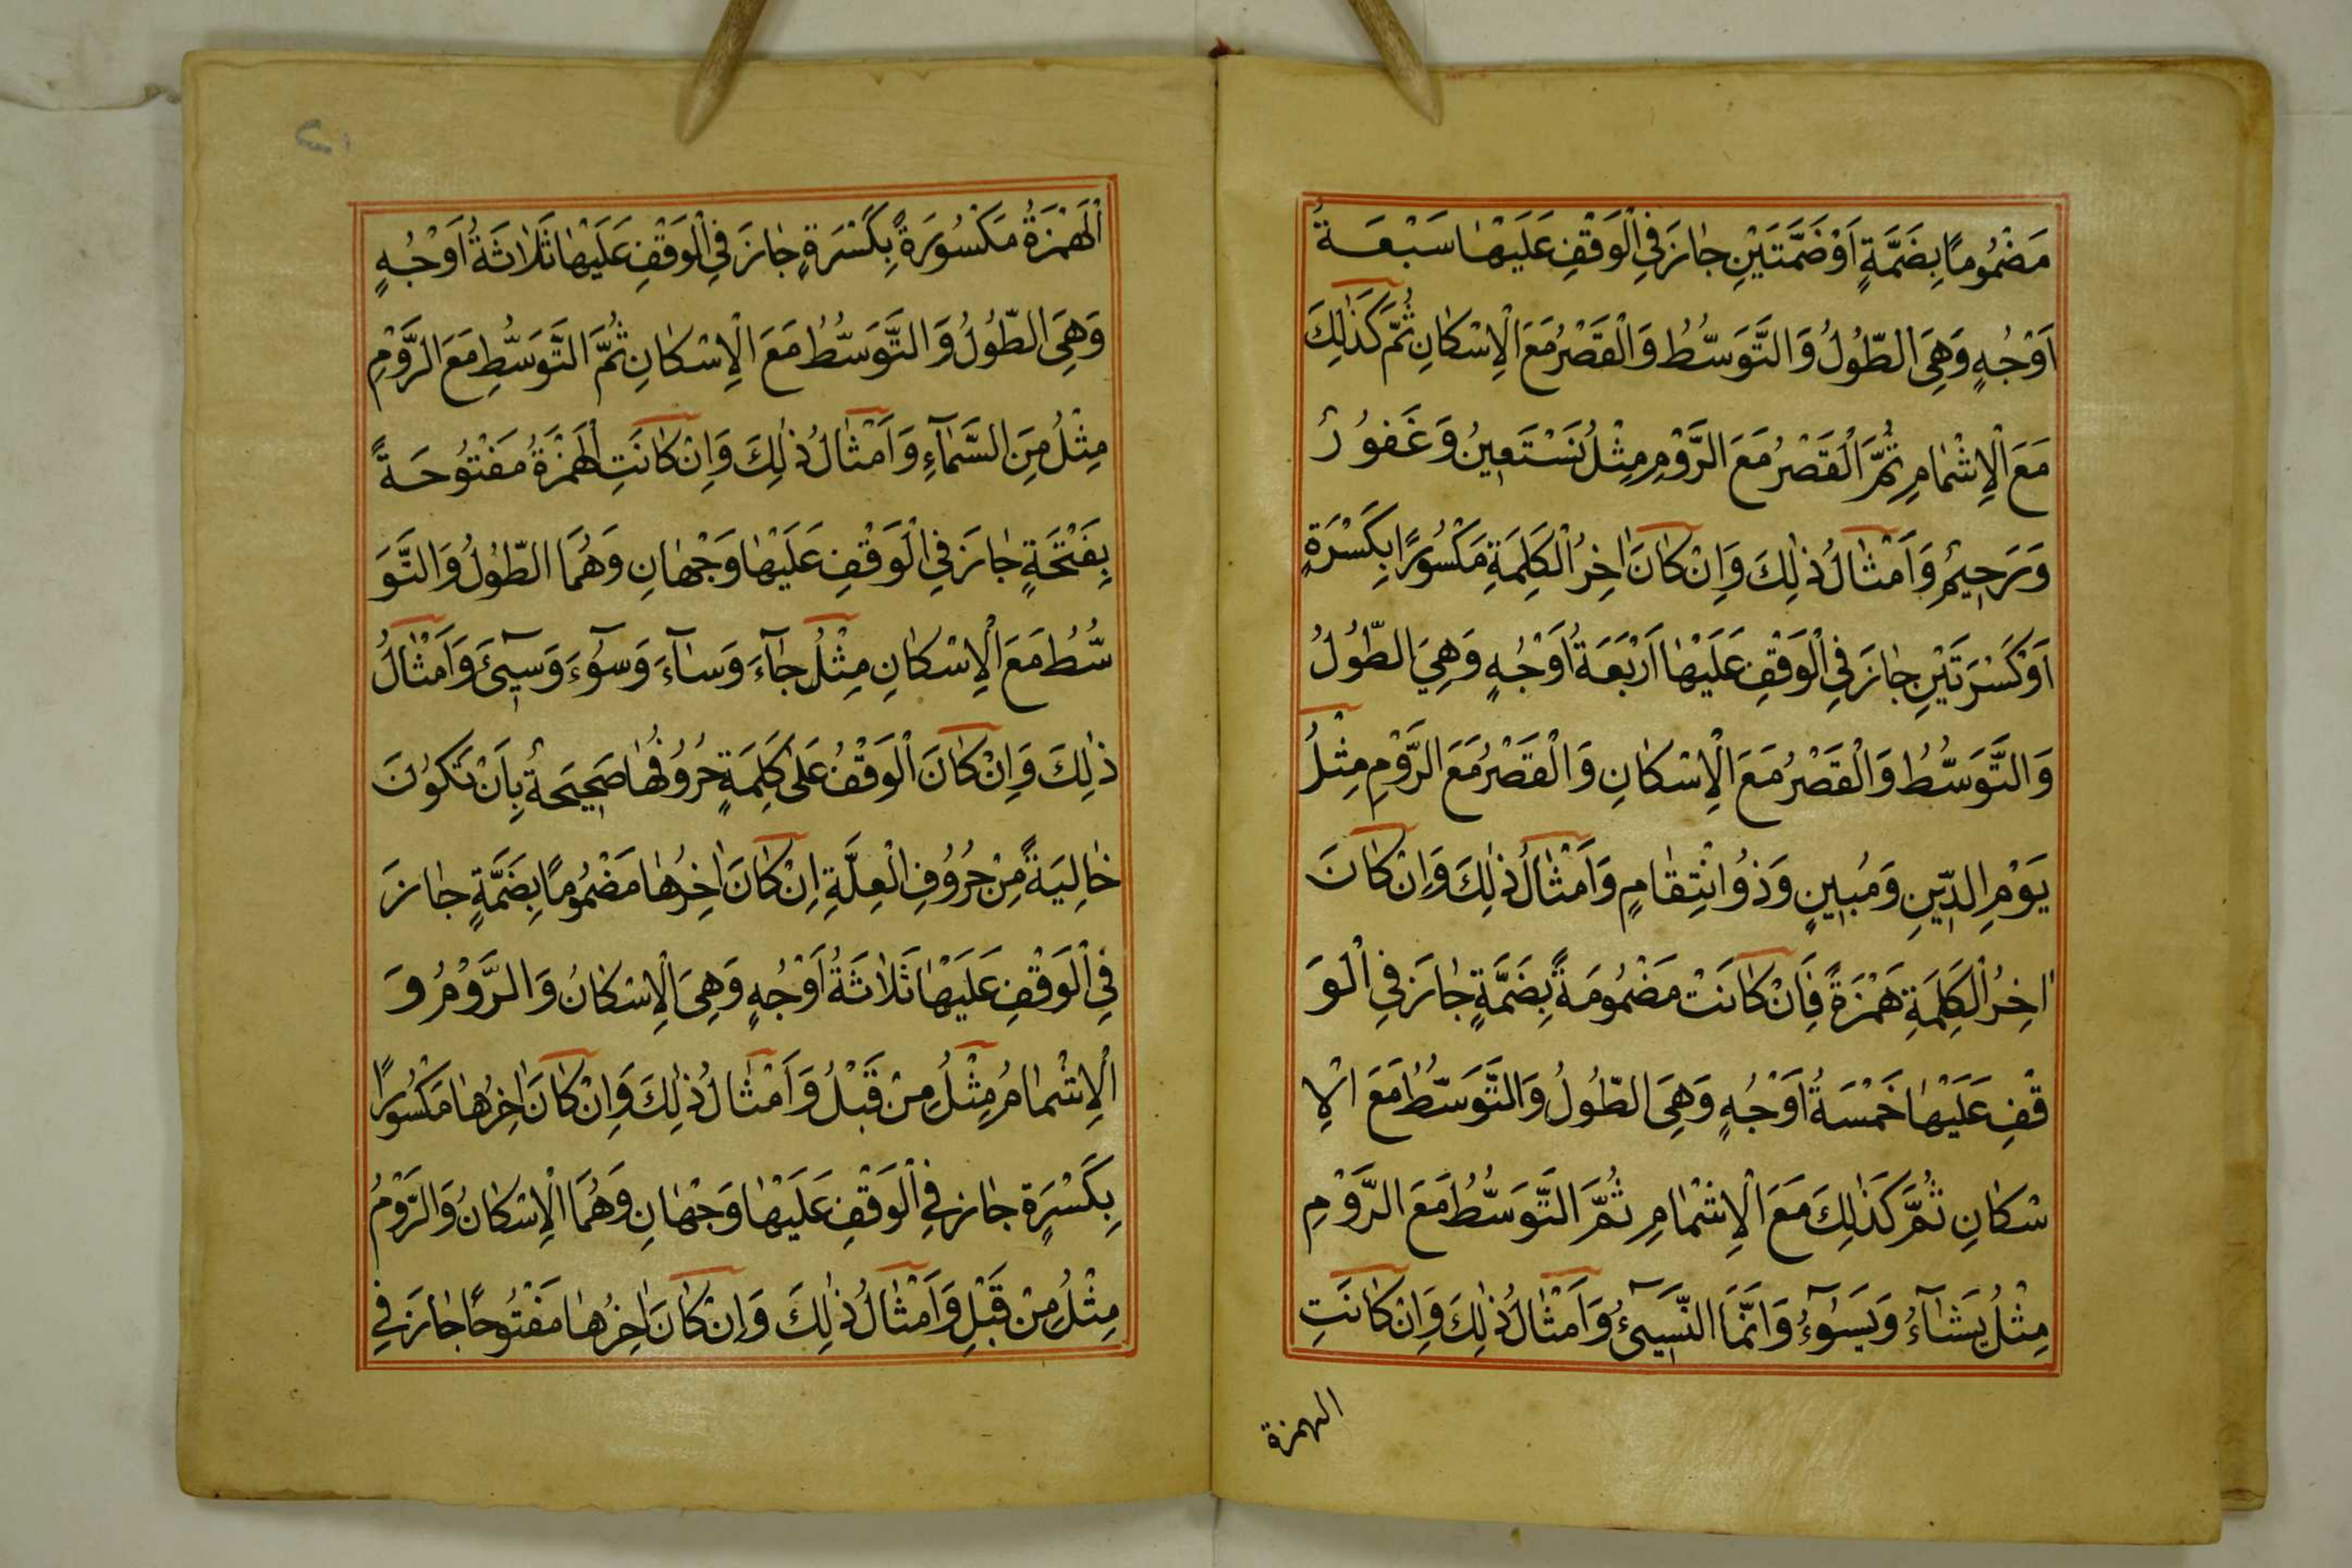 مَضْمُومًا بِضَمَّةٍ اَوْ ضَمَّتَيْنِ جَازَ فِي الْوَقْفِ عَلَيْهَا سَبْعَةُ
اَوْجُهٍ وَهِيَ الطُّولُ وَالتَّوَسُّطُ وَالْقَصْرُ مَعَ الْاِسْكَانِ ثُمَّ كَذٰلِكَ
مَعَ الْاِشْمَامِ ثُمَّ الْقَصْرُ مَعَ الرَّوْمِ مِثْلُ نَسْتَعِينُ وَغَفُورٌ
وَرَحِيمٌ وَاَمْثَالُ ذٰلِكَ وَاِنْ كَانَ اٰخِرُ الْكَلِمَةِ مَكْسُورًا بِكَسْرَةٍ
اَوْ كَسْرَتَيْنِ جَازَ فِي الْوَقْفِ عَلَيْهَا اَرْبَعَةُ اَوْجُهٍ وَهِيَ الطُّولُ
وَالتَّوَسُّطُ وَالْقَصْرُ مَعَ الْاِسْكَانِ وَالْقَصْرُ مَعَ الرَّوْمِ مِثْلُ
يَوْمِ الدِّينِ وَمُبِينٍ وَذُو انْتِقَامٍ وَاَمْثَالُ ذٰلِكَ وَاِنْ كَانَ
اٰخِرُ الْكَلِمَةِ هَمْزَةً فَاِنْ كَانَتْ مَضْمُومَةً بِضَمَّةٍ جَازَ فِي الْوَ
قْفِ عَلَيْهَا خَمْسَةُ اَوْجُهٍ وَهِيَ الطُّولُ وَالتَّوَسُّطُ مَعَ الْاِ
سْكَانِ ثُمَّ كَذٰلِكَ مَعَ الْاِشْمَامِ ثُمَّ التَّوَسُّطُ مَعَ الرَّوْمِ
مِثْلُ يَشَآءُ وَيَسُوٓءُ وَاِنَّمَا النَّسِيٓئُ وَاَمْثَالُ ذٰلِكَ وَاِنْ كَانَتِ
الهمزة
الْهَمْزَةُ مَكْسُورَةً بِكَسْرَةٍ جَازَ فِي الْوَقْفِ عَلَيْهَا ثَلَاثَةُ اَوْجُهٍ
وَهِيَ الطُّولُ وَالتَّوَسُّطُ مَعَ الْاِسْكَانِ ثُمَّ التَّوَسُّطِ مَعَ الرَّوْمِ
مِثْلُ مِنَ السَّمَآءِ وَاَمْثَالُ ذٰلِكَ وَاِنْ كَانَتِ الْهَمْزَةُ مَفْتُوحَةً
بِفَتْحَةٍ جَازَ فِي الْوَقْفِ عَلَيْهَا وَجْهَانِ وَهُمَا الطُّولُ وَالتَّوَ
سُّطُ مَعَ الْاِسْكَانِ مِثْلُ جَآءَ وَسَآءَ وَسُوٓءَ وَسِيٓئَ وَاَمْثَالُ
ذٰلِكَ وَاِنْ كَانَ الْوَقْفُ عَلٰى كَلِمَةٍ حُرُوفُهَا صَحِيحَةٌ بِاَنْ تَكُونَ
خَالِيَةً مِنْ حُرُوفِ الْعِلَّةِ اِنْ كَانَ اٰخِرُهَا مَضْمُومًا بِضَمَّةٍ جَازَ
فِي الْوَقْفِ عَلَيْهَا ثَلَاثَةُ اَوْجُهٍ وَهِيَ الْاِسْكَانُ وَالرَّوْمُ وَ
الْاِشْمَامُ مِثْلُ مِنْ قَبْلُ وَاَمْثَالُ ذٰلِكَ وَاِنْ كَانَ اٰخِرُهَا مَكْسُورًا
بِكَسْرَةٍ جَازَ فِي الْوَقْفِ عَلَيْهَا وَجْهَانِ وَهُمَا الْاِسْكَانُ وَالرَّوْمُ
مِثْلُ مِنْ قَبْلِ وَاَمْثَالُ ذٰلِكَ وَاِنْ كَانَ اٰخِرُهَا مَفْتُوحًا جَازَ فِي